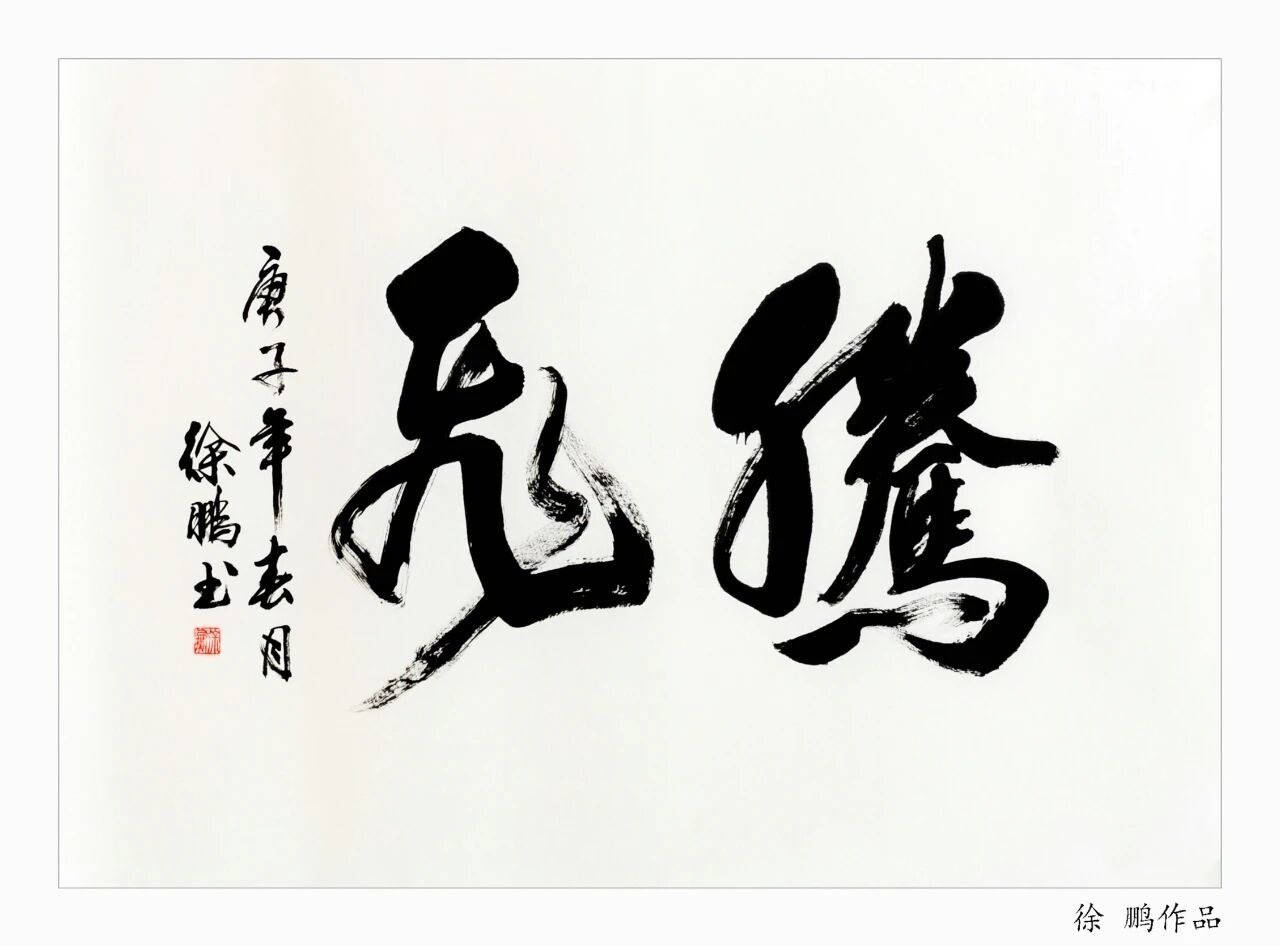 騰飛
庚子年春月
徐鹏书
徐 鹏作品